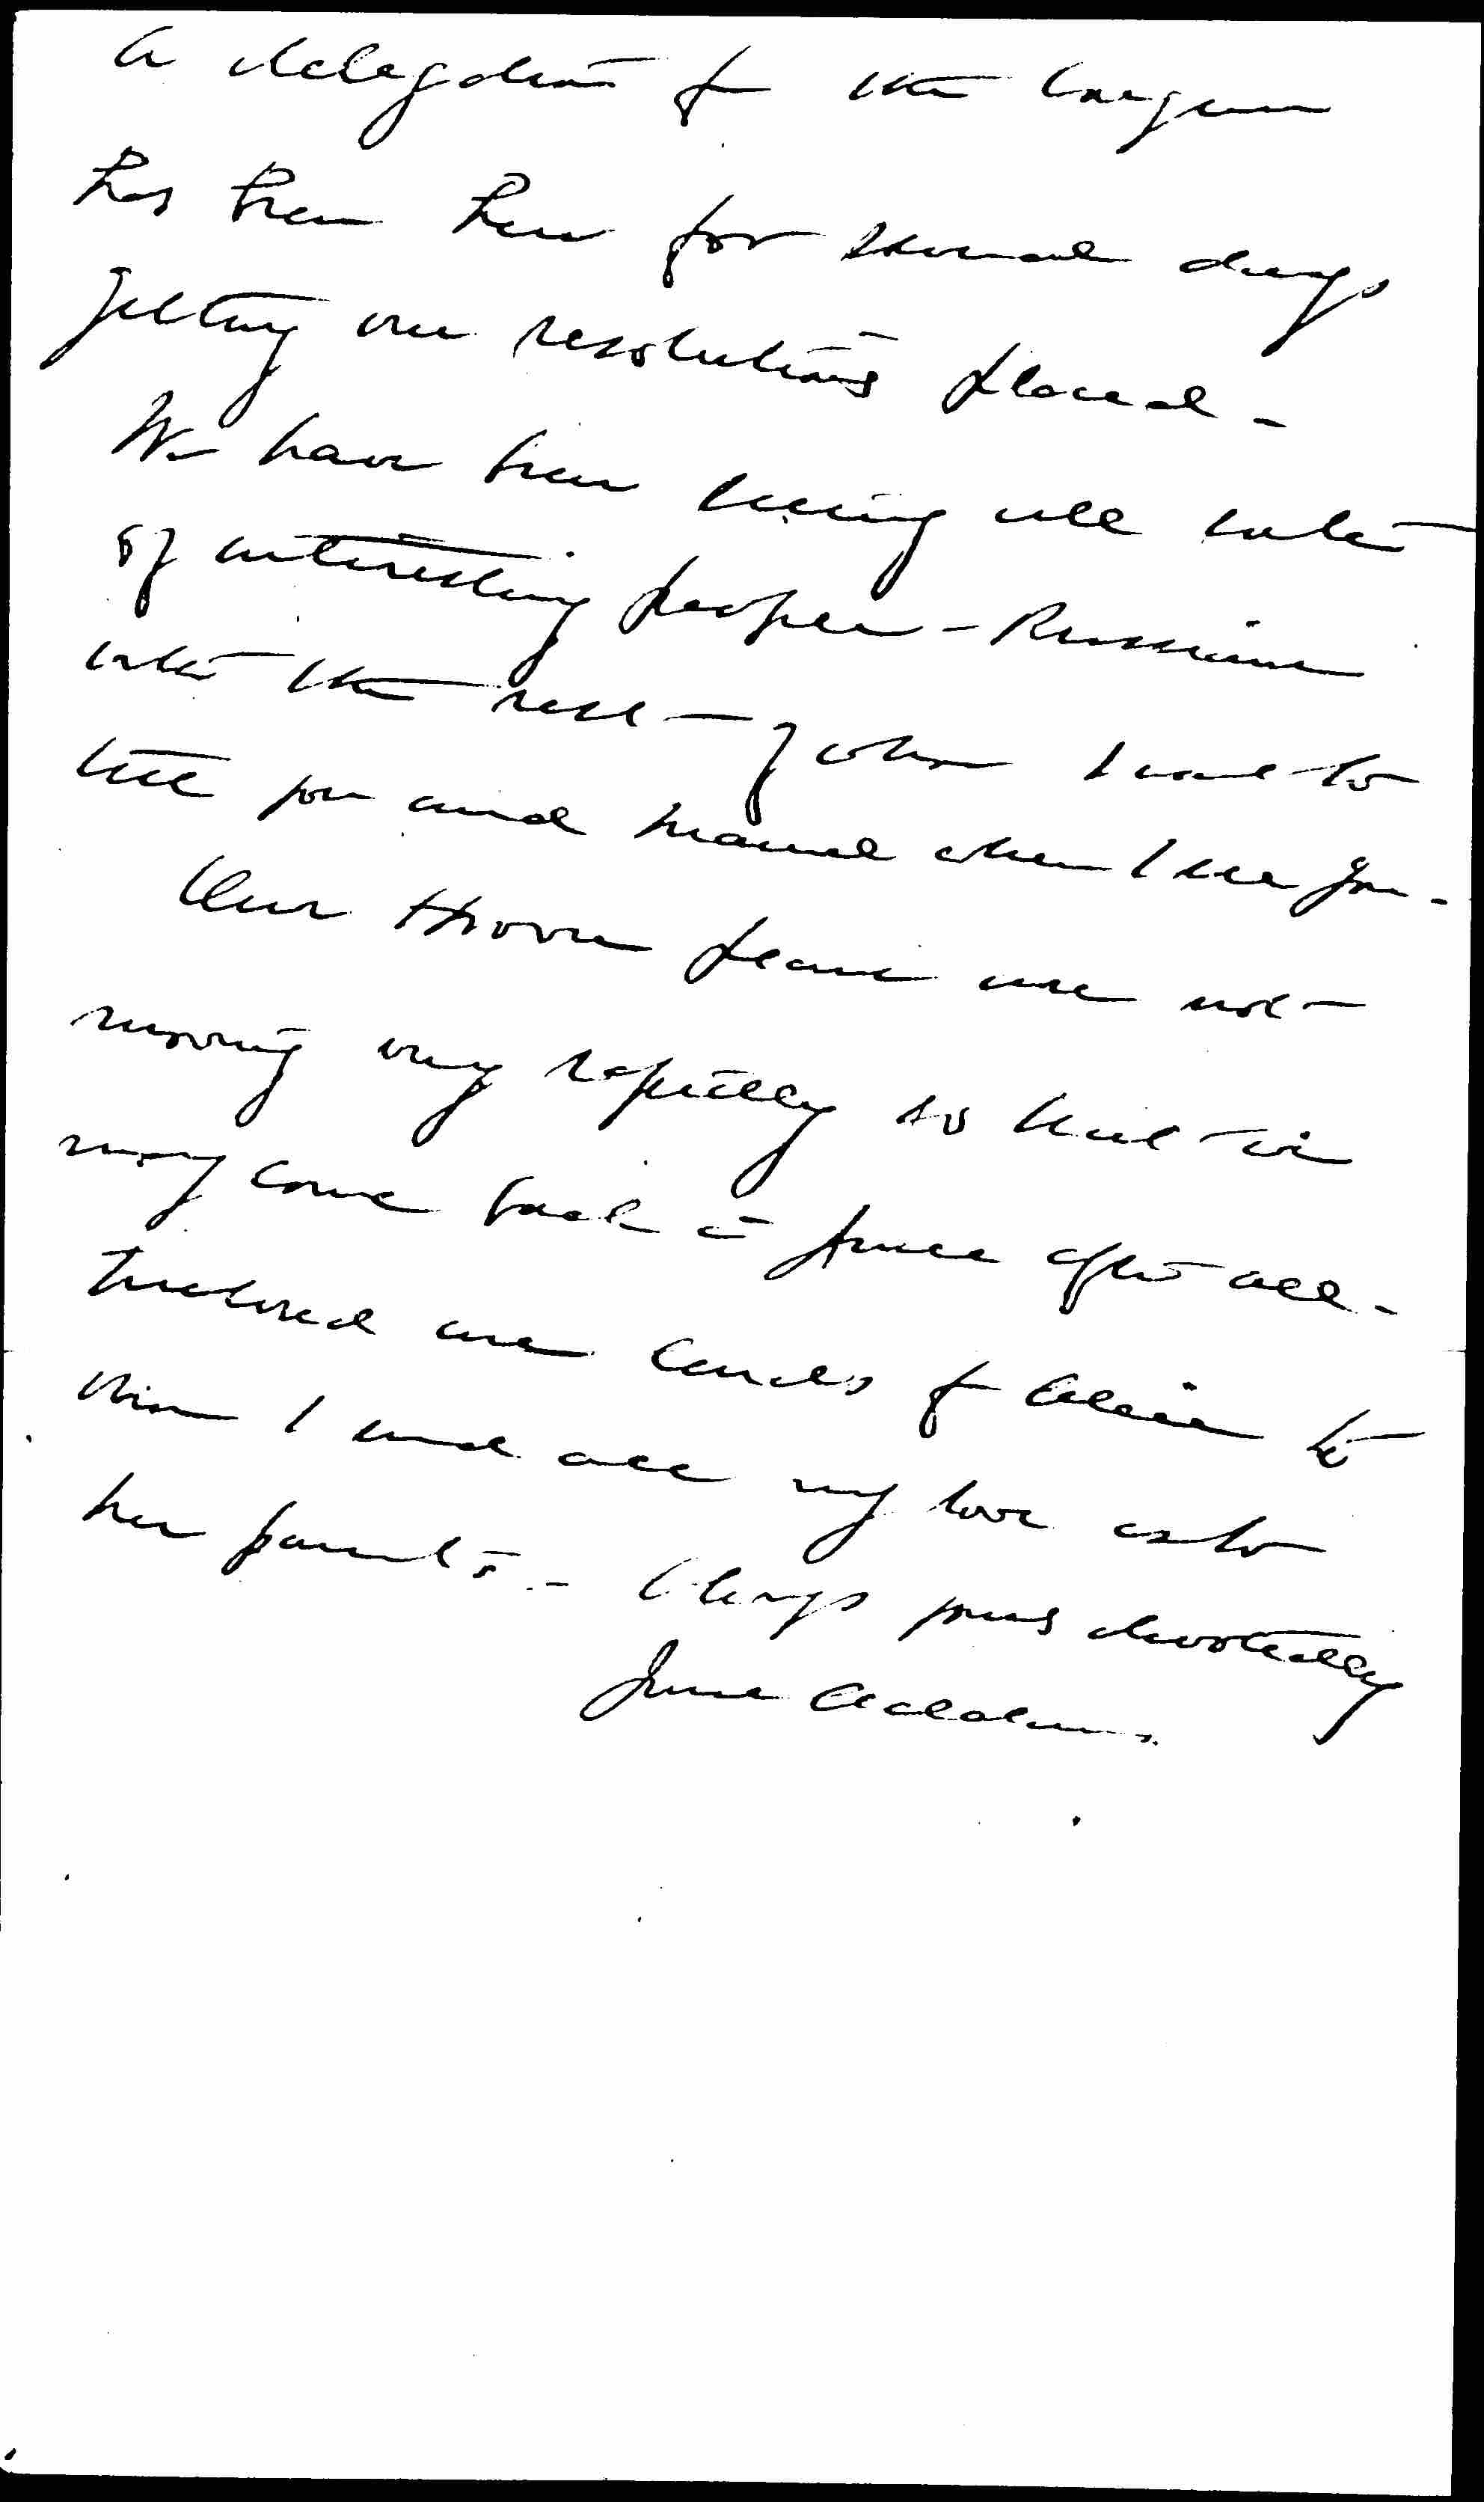 A delegation from the Congress
has been here for several days
getting our resolutions placed -
We have been seeing all sorts
of interesting people - Russians
with the rest - of whom I want to
tell you and Maud when I see you -
Our Hoover plans are not
moving very rapidly so that we
may come back in June after all -
Enclosed are cards from Alice to
whom I send all my love as to
her parents - Always yours devotedly
Jane Addams.